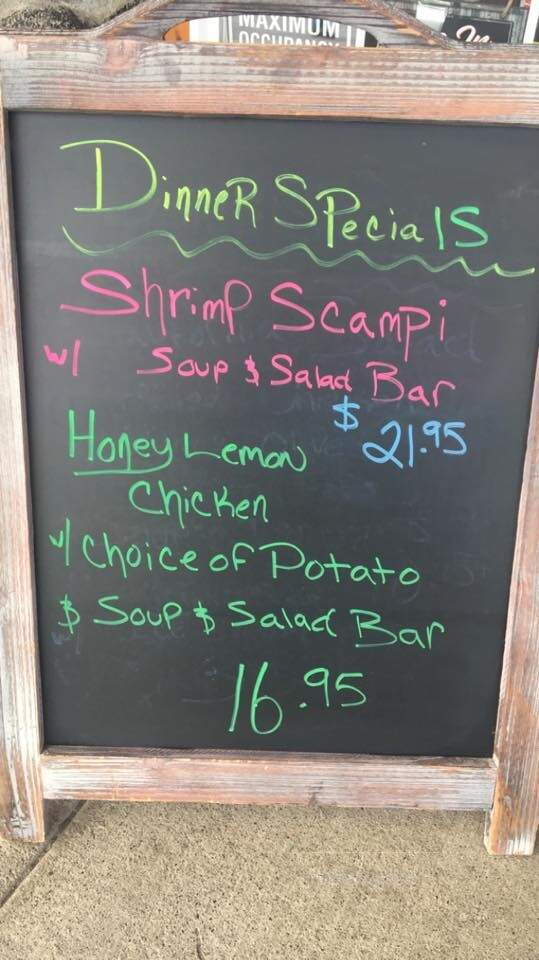 MAXIMUM
OCCUPANCY
In
Dinner Specials
Shrimp Scampi
w/ Soup & Salad Bar
$ 21.95
Honey Lemon
Chicken
w/ Choice of Potato
& Soup & Salad Bar
16.95